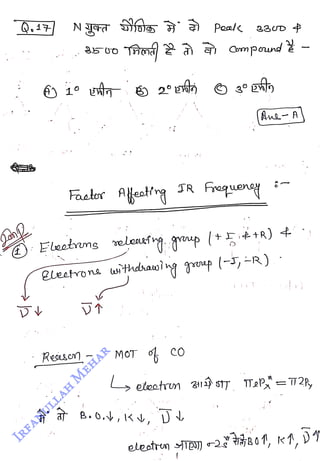 Q.17 N युक्त यौगिक में दो Peak 3300 व
3500 मिलती है तो वो compound है -
Ⓐ 1° एमीन Ⓑ 2° एमीन Ⓒ 3° एमीन
Ans - A
Factor Affecting IR Frequency :-
Imp
① Electrons releasing group (+I व +R) व
Electrons withdrawing group (-I, -R).
ν̅ ↓ ν̅ ↑
Reason - MOT of CO
electron आयेगा π2Pₓ* = π2Pᵧ
में तो B.O.↓, K↓, ν̅↓
electron जाएगा 2s* से तो BO↑, K↑, ν̅↑
IRFANULLAH MEHAR